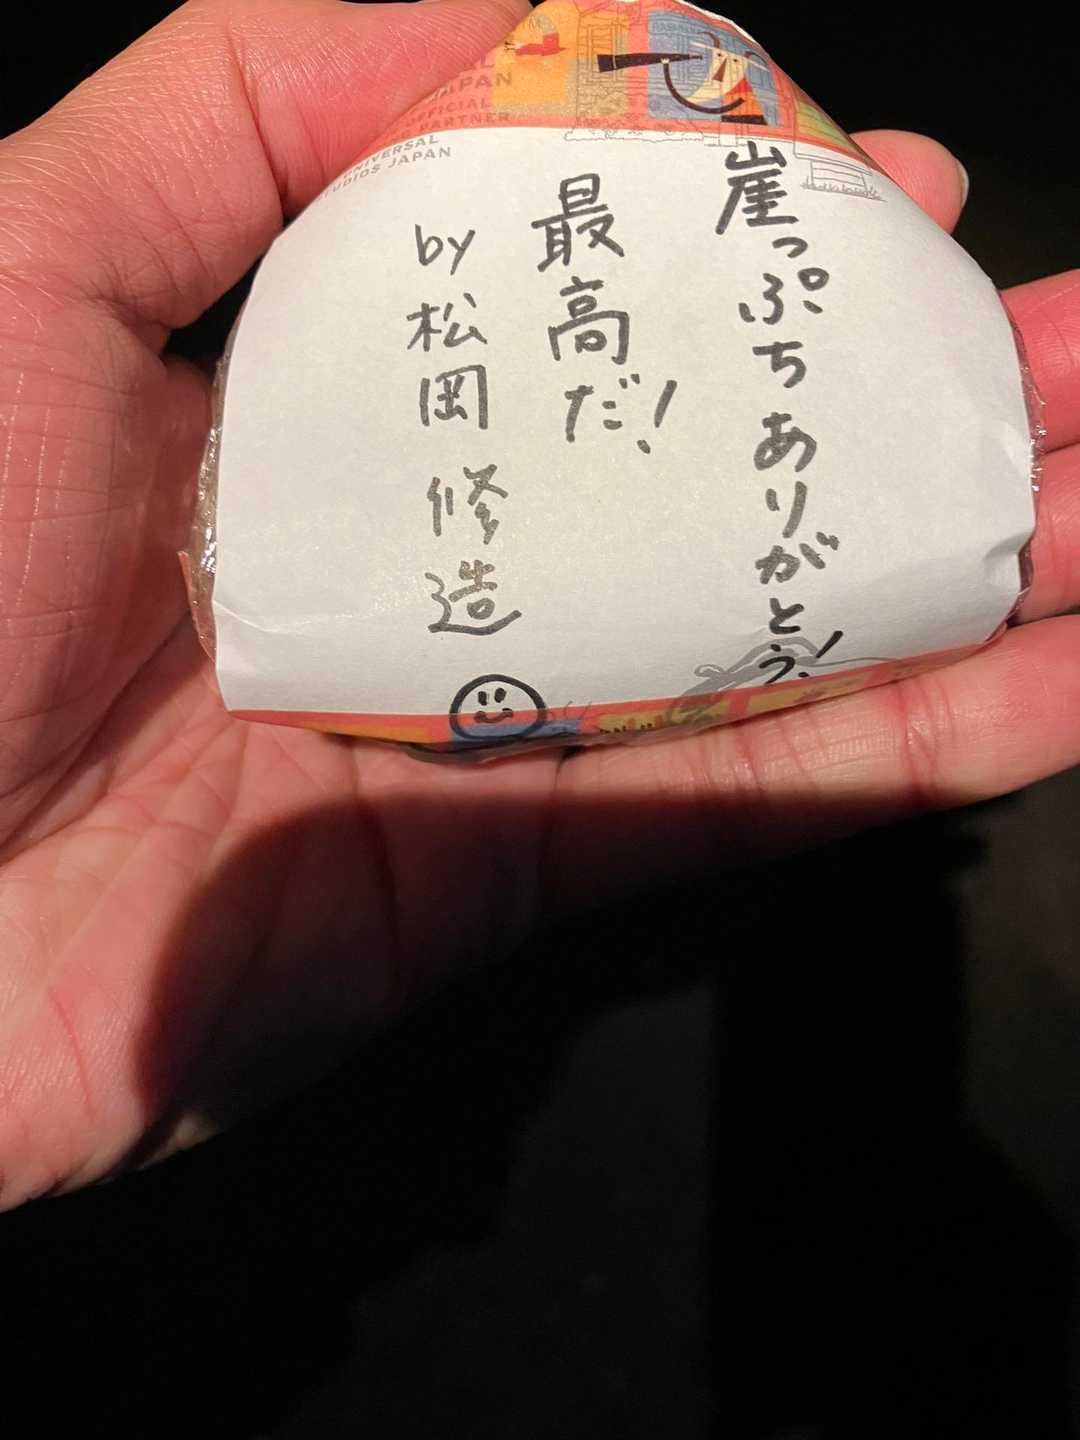 崖っぷちありがとう!
最高だ!
by 松岡 修造
JAPAN
OFFICIAL
PARTNER
UNIVERSAL
STUDIOS JAPAN